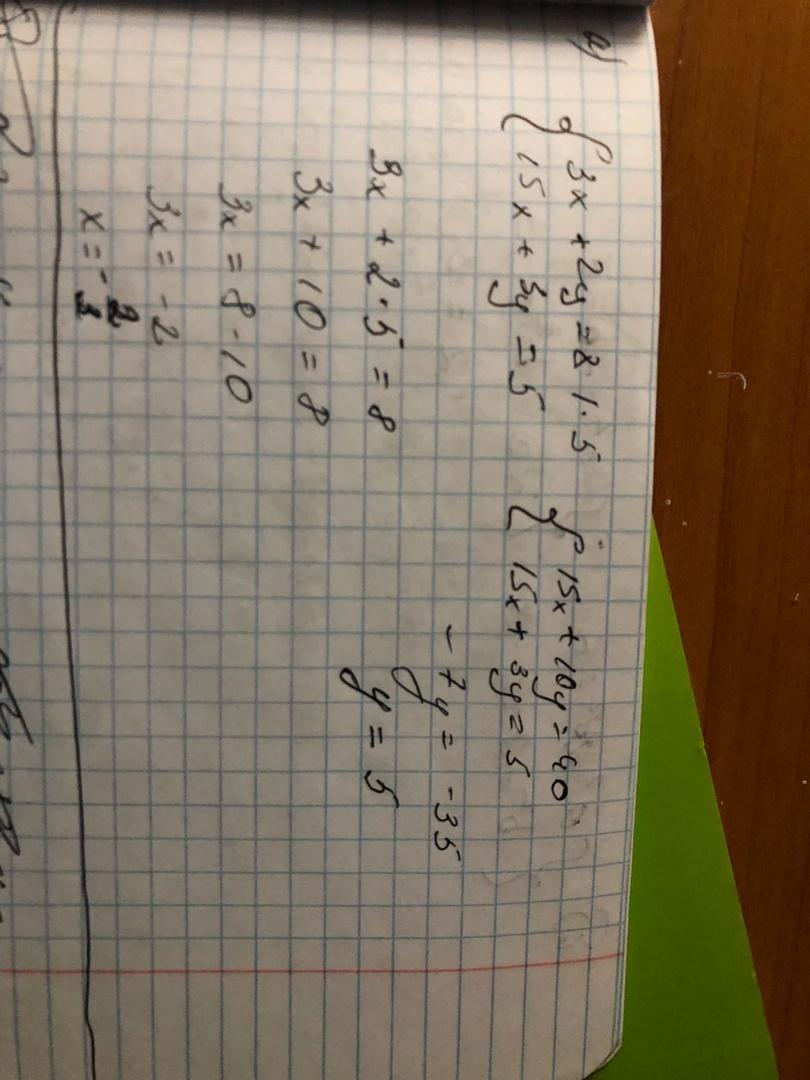 а)
{ 3x + 2y = 8 | · 5
{ 15x + 3y = 5
{ 15x + 10y = 40
{ 15x + 3y = 5
- 7y = -35
y = 5
3x + 2·5 = 8
3x + 10 = 8
3x = 8-10
3x = -2
x = -2/3